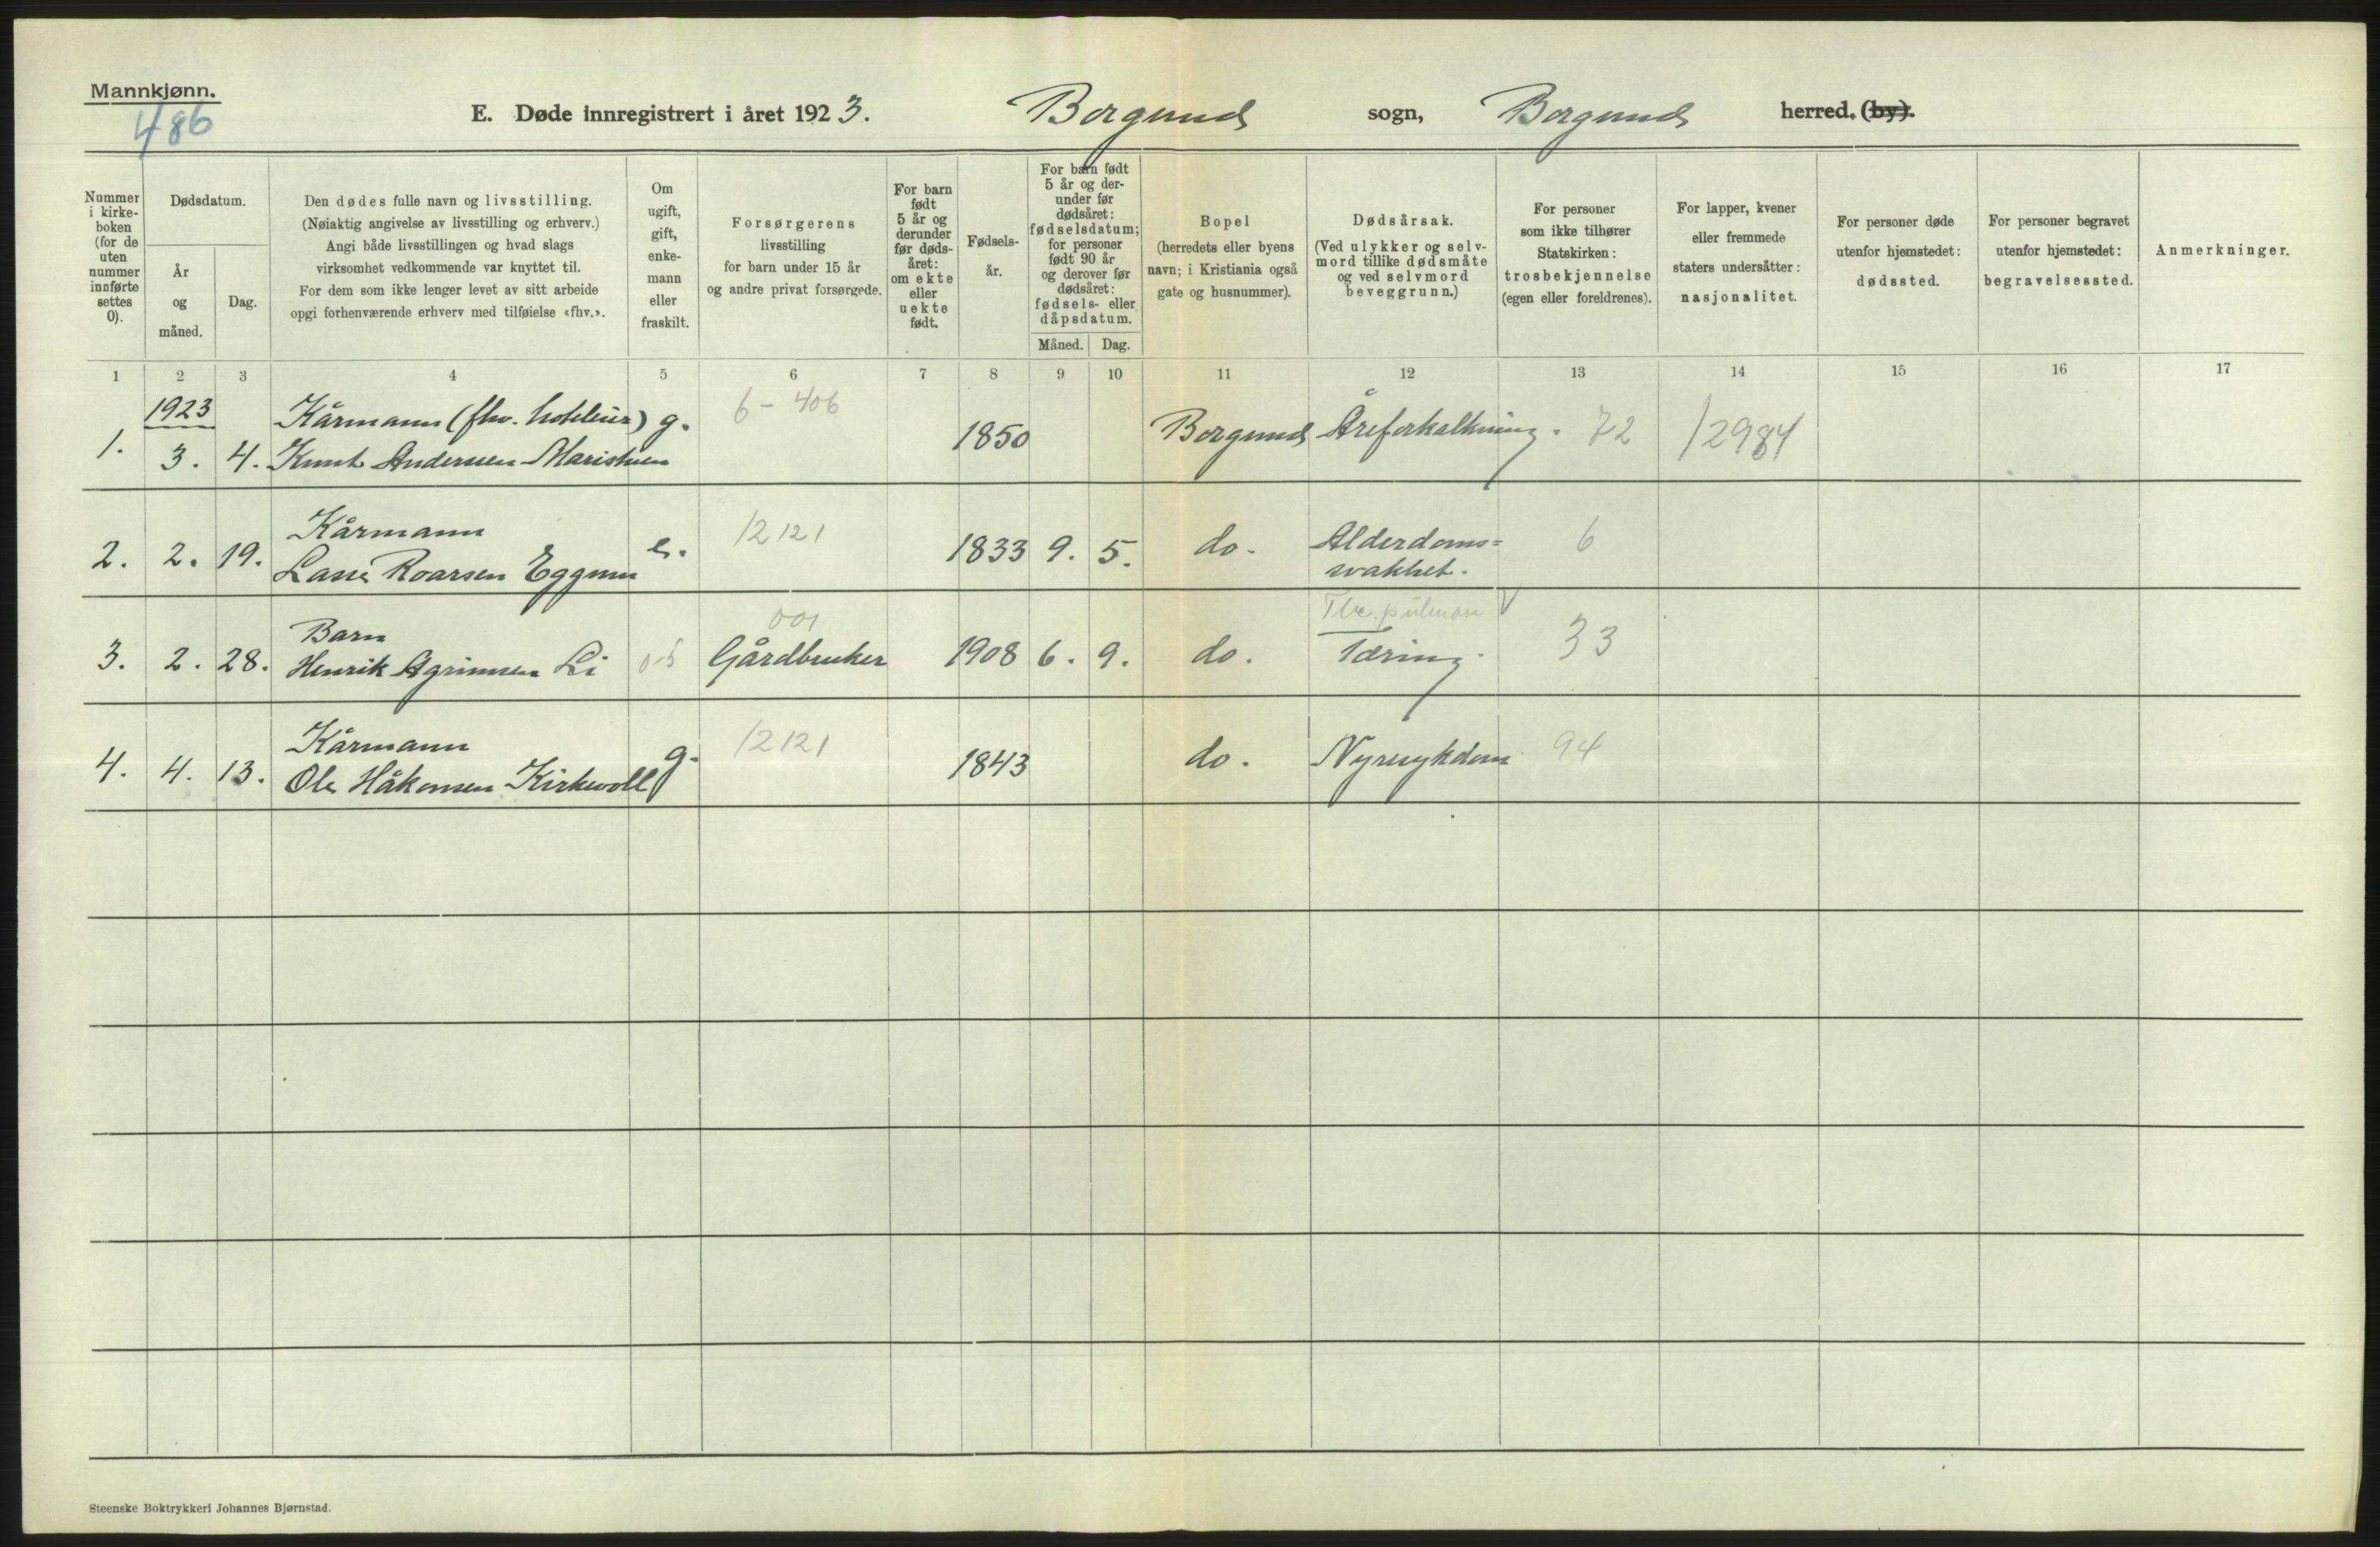 Mannkjønn.
486
E. Døde innregistrert i året 1923. Borgund sogn, Borgund herred. (by).
Nummer i kirke- boken (for de uten nummer innførte settes 0).
Dødsdatum.
År og måned.
Dag.
Den dødes fulle navn og livsstilling.
(Nøiaktig angivelse av livsstilling og erhverv.)
Angi både livsstillingen og hvad slags
virksomhet vedkommende var knyttet til.
For dem som ikke lenger levet av sitt arbeide
opgi forhenværende erhverv med tilføielse «fhv.».
Om ugift, gift, enke- mann eller fraskilt.
Forsørgerens
livsstilling
for barn under 15 år
og andre privat forsørgede.
For barn født 5 år og derunder før døds- året: om ekte eller uekte født.
Fødsels- år.
For barn født 5 år og der- under før dødsåret: fødselsdatum; for personer født 90 år og derover før dødsåret: fødsels- eller dåpsdatum.
Måned. Dag.
Bopel
(herredets eller byens
navn; i Kristiania også
gate og husnummer).
Dødsårsak.
(Ved ulykker og selv-
mord tillike dødsmåte
og ved selvmord
beveggrunn.)
For personer
som ikke tilhører
Statskirken:
trosbekjennelse
(egen eller foreldrenes).
For lapper, kvener
eller fremmede
staters undersåtter:
nasjonalitet.
For personer døde
utenfor hjemstedet:
dødssted.
For personer begravet
utenfor hjemstedet:
begravelsessted.
Anmerkninger.
1 2 3 4 5 6 7 8 9 10 11 12 13 14 15 16 17
1923 Kårmann (fhv. hotleier) g. 6-406
1. 3. 4. Knut Andersen Maristuen 1850 Borgund Åreforkalkning. 72 12984
Kårmann 12121
2. 2. 19. Lasse Roarsen Eggum e. 1833 9. 5. do. Alderdoms=
svakhet. 6
Barn 001 Tbc. pulmon V
3. 2. 28. Henrik Agrimsen Li 05 Gårdbruker 1908 6. 9. do. Tæring. 33
Kårmann 12121
4. 4. 13. Ole Håkonsen Kirkevoll g. 1843 do. Nyresykdom 94
Steenske Boktrykkeri Johannes Bjørnstad.